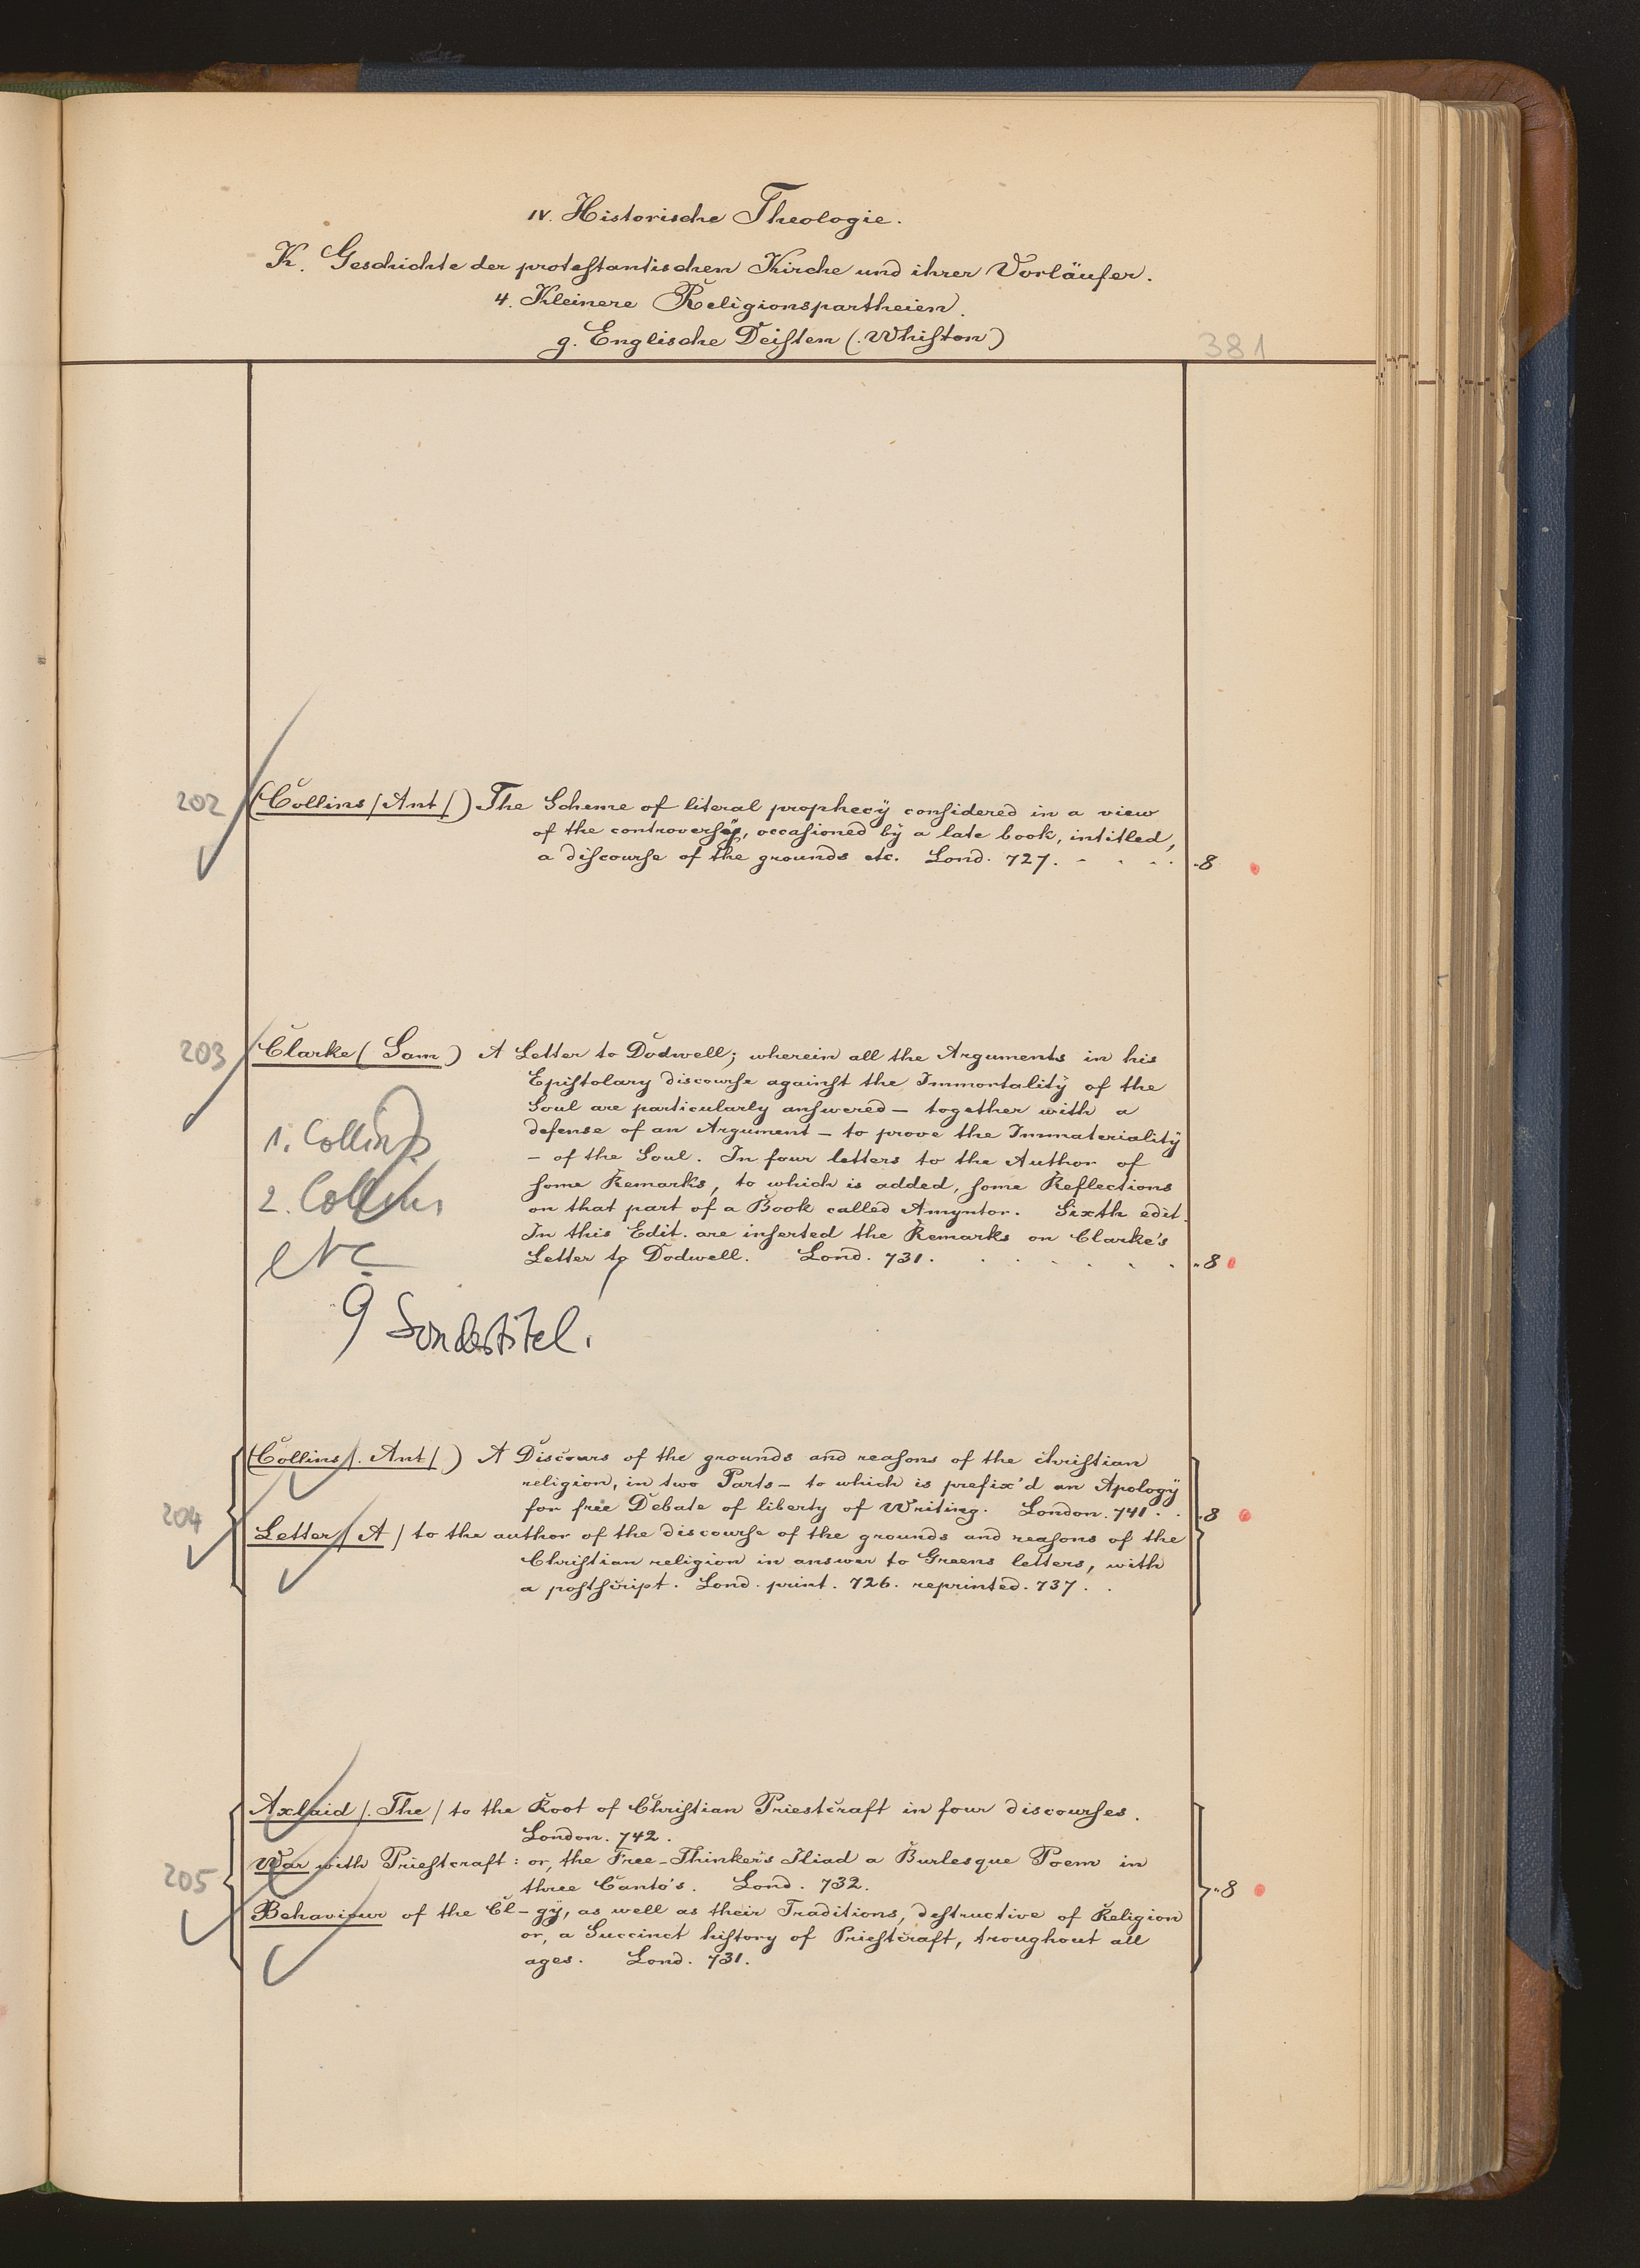 IV. Historische Theologie.
K. Geschichte der protestantischen Kirche und ihrer Vorläufer.
4. Kleinere Religionspartheien.
g. Englische Deisten (. Whiston)
381
202 (Collins /Ant/) The Scheme of literal prophecy considered in a view
of the controversy, occasioned by a late book, intitled,
a discourse of the grounds etc. Lond. 727. - . . . 8
203 Clarke ( Sam ) A Letter to Dodwell; wherein all the Arguments in his
Epistolary discourse against the Immortality of the
Soul are particularly answered – together with a
defense of an Argument – to prove the Immateriality
– of the Soul. In four letters to the Author of
some Remarks, to which is added, some Reflections
on that part of a Book called Amyntor. Sixth edit.
In this Edit. are inserted the Remarks on Clarke's
Letter to Dodwell. Lond. 731. . . . . . . 8
1. Collins
2. Collins
etc
9 Sondertitel.
204 (Collins /. Ant /.) A Discours of the grounds and reasons of the christian
religion, in two Parts – to which is prefix'd an Apology
for free Debate of liberty of Writing. London. 741. . 8
Letter / A / to the author of the discourse of the grounds and reasons of the
Christian religion in answer to Greens letters, with
a postscript. Lond. print. 726. reprinted. 737. .
205 Axlaid /. The / to the Root of Christian Priestcraft in four discourses.
London. 742.
War with Priestcraft: or, the Free-Thinker's Iliad a Burlesque Poem in
three Canto's. Lond. 732.
8
Behaviour of the Cl-gy, as well as their Traditions, destructive of Religion
or, a Succinct history of Priestcraft, troughout all
ages. Lond. 731.